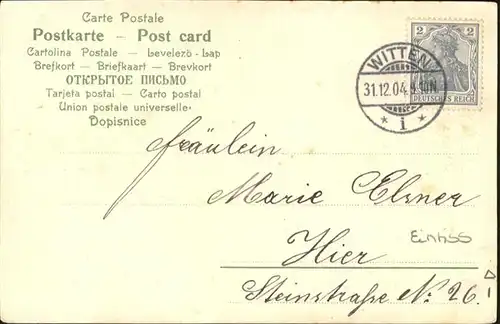 Carte Postale
Postkarte — Post card
Cartolina Postale — Levelező-Lap
Brefkort — Briefkaart — Brevkort
ОТКРЫТОЕ ПИСЬМО
Tarjeta postal — Carto postal
Union postale universelle
Dopisnice
2 2
DEUTSCHES REICH
WITTEN
31.12.04.
* i *
Fräulein
Marie Elsner
Hier
Einriss
Steinstraße No. 26.